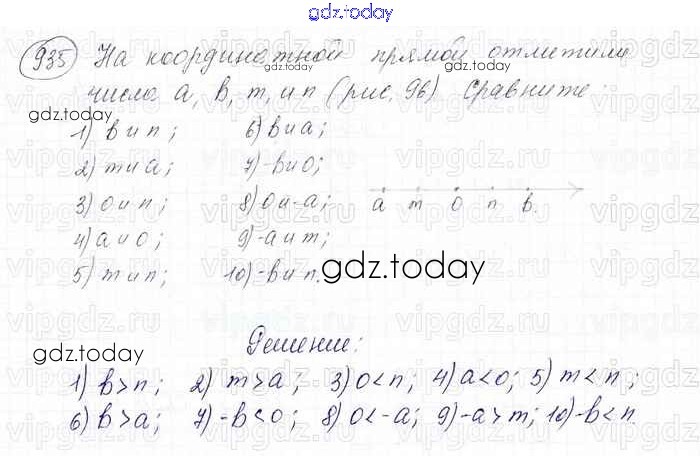 gdz.today
935 На координатной прямой отметили
числа a, b, m, и n (рис. 96) Сравните:
1) b и n; 6) b и a;
2) m и a; 7) -b и 0;
3) 0 и n; 8) 0 и -a;
4) a и 0; 9) -a и m;
5) m и n; 10) -b и n.
a m 0 n b.
gdz.today
Решение:
1) b > n; 2) m > a; 3) 0 < n; 4) a < 0; 5) m < n;
6) b > a; 7) -b < 0; 8) 0 < -a; 9) -a > m; 10) -b < n.
gdz.today
gdz.today
gdz.today
vipgdz